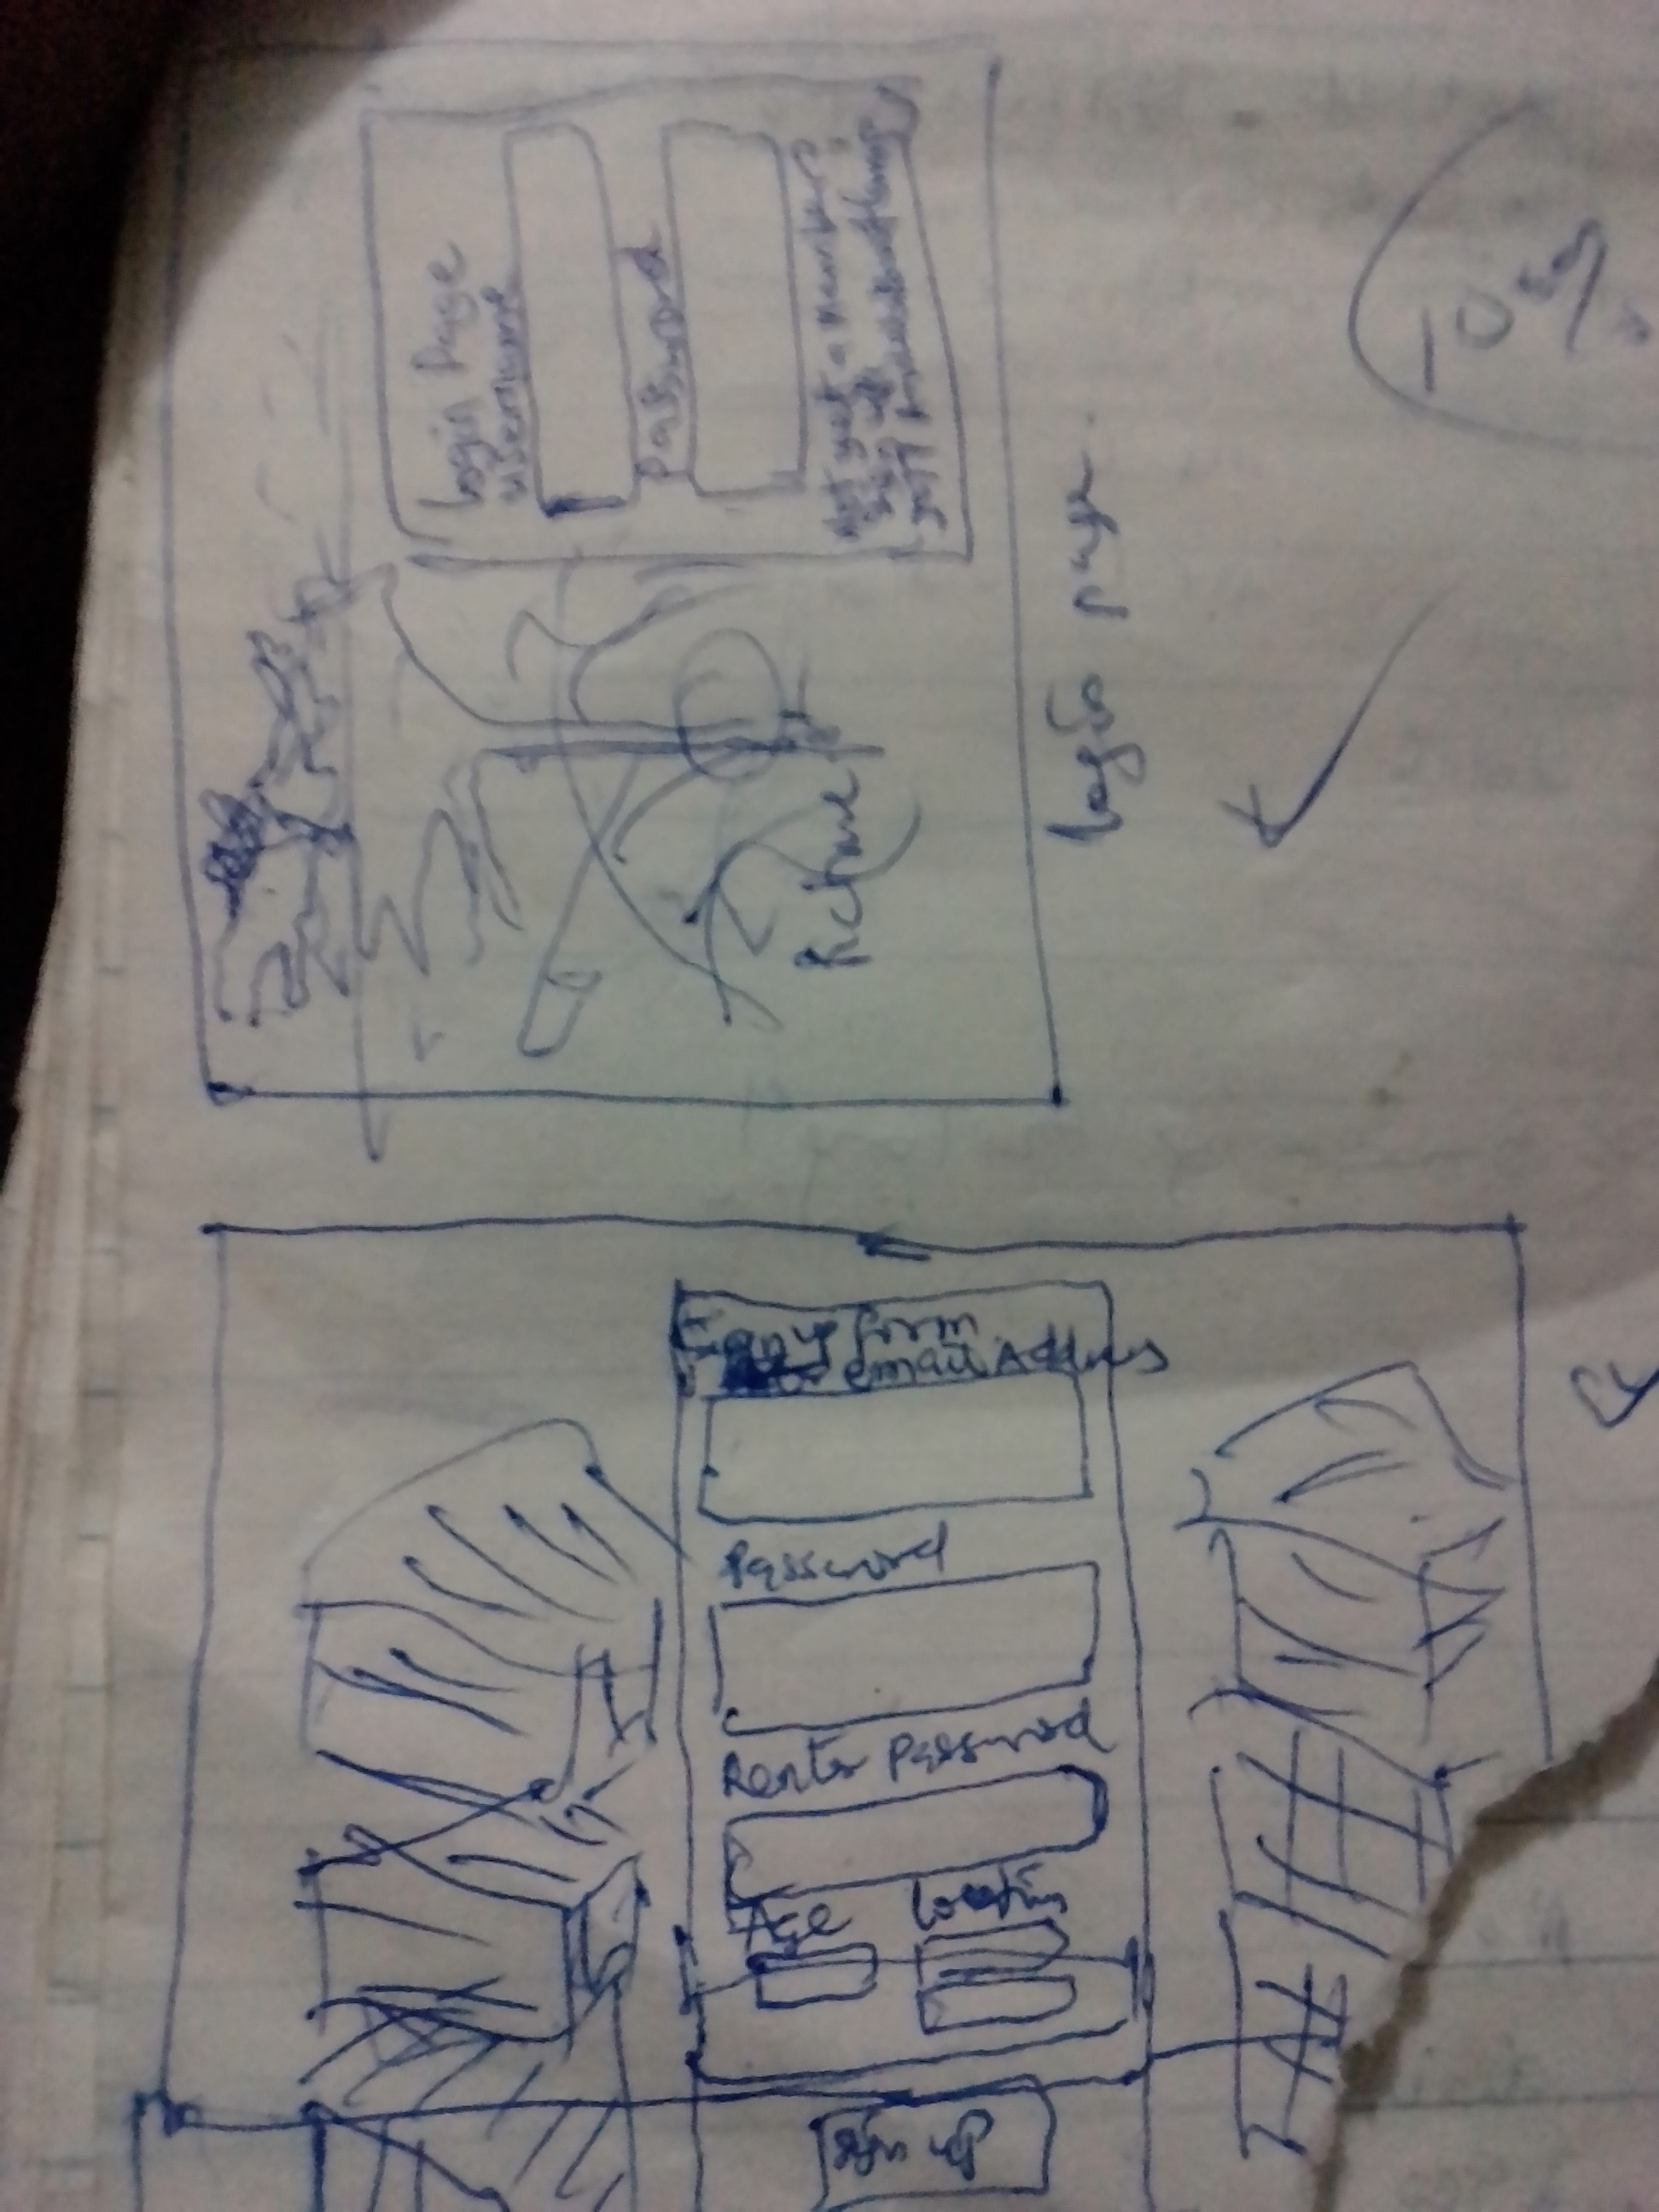 Login Page
username
Password
Not yet a member?
Sign up
Picture
Login page
10
Sign up form
email Address
Password
Renter Password
Age Location
Sign up